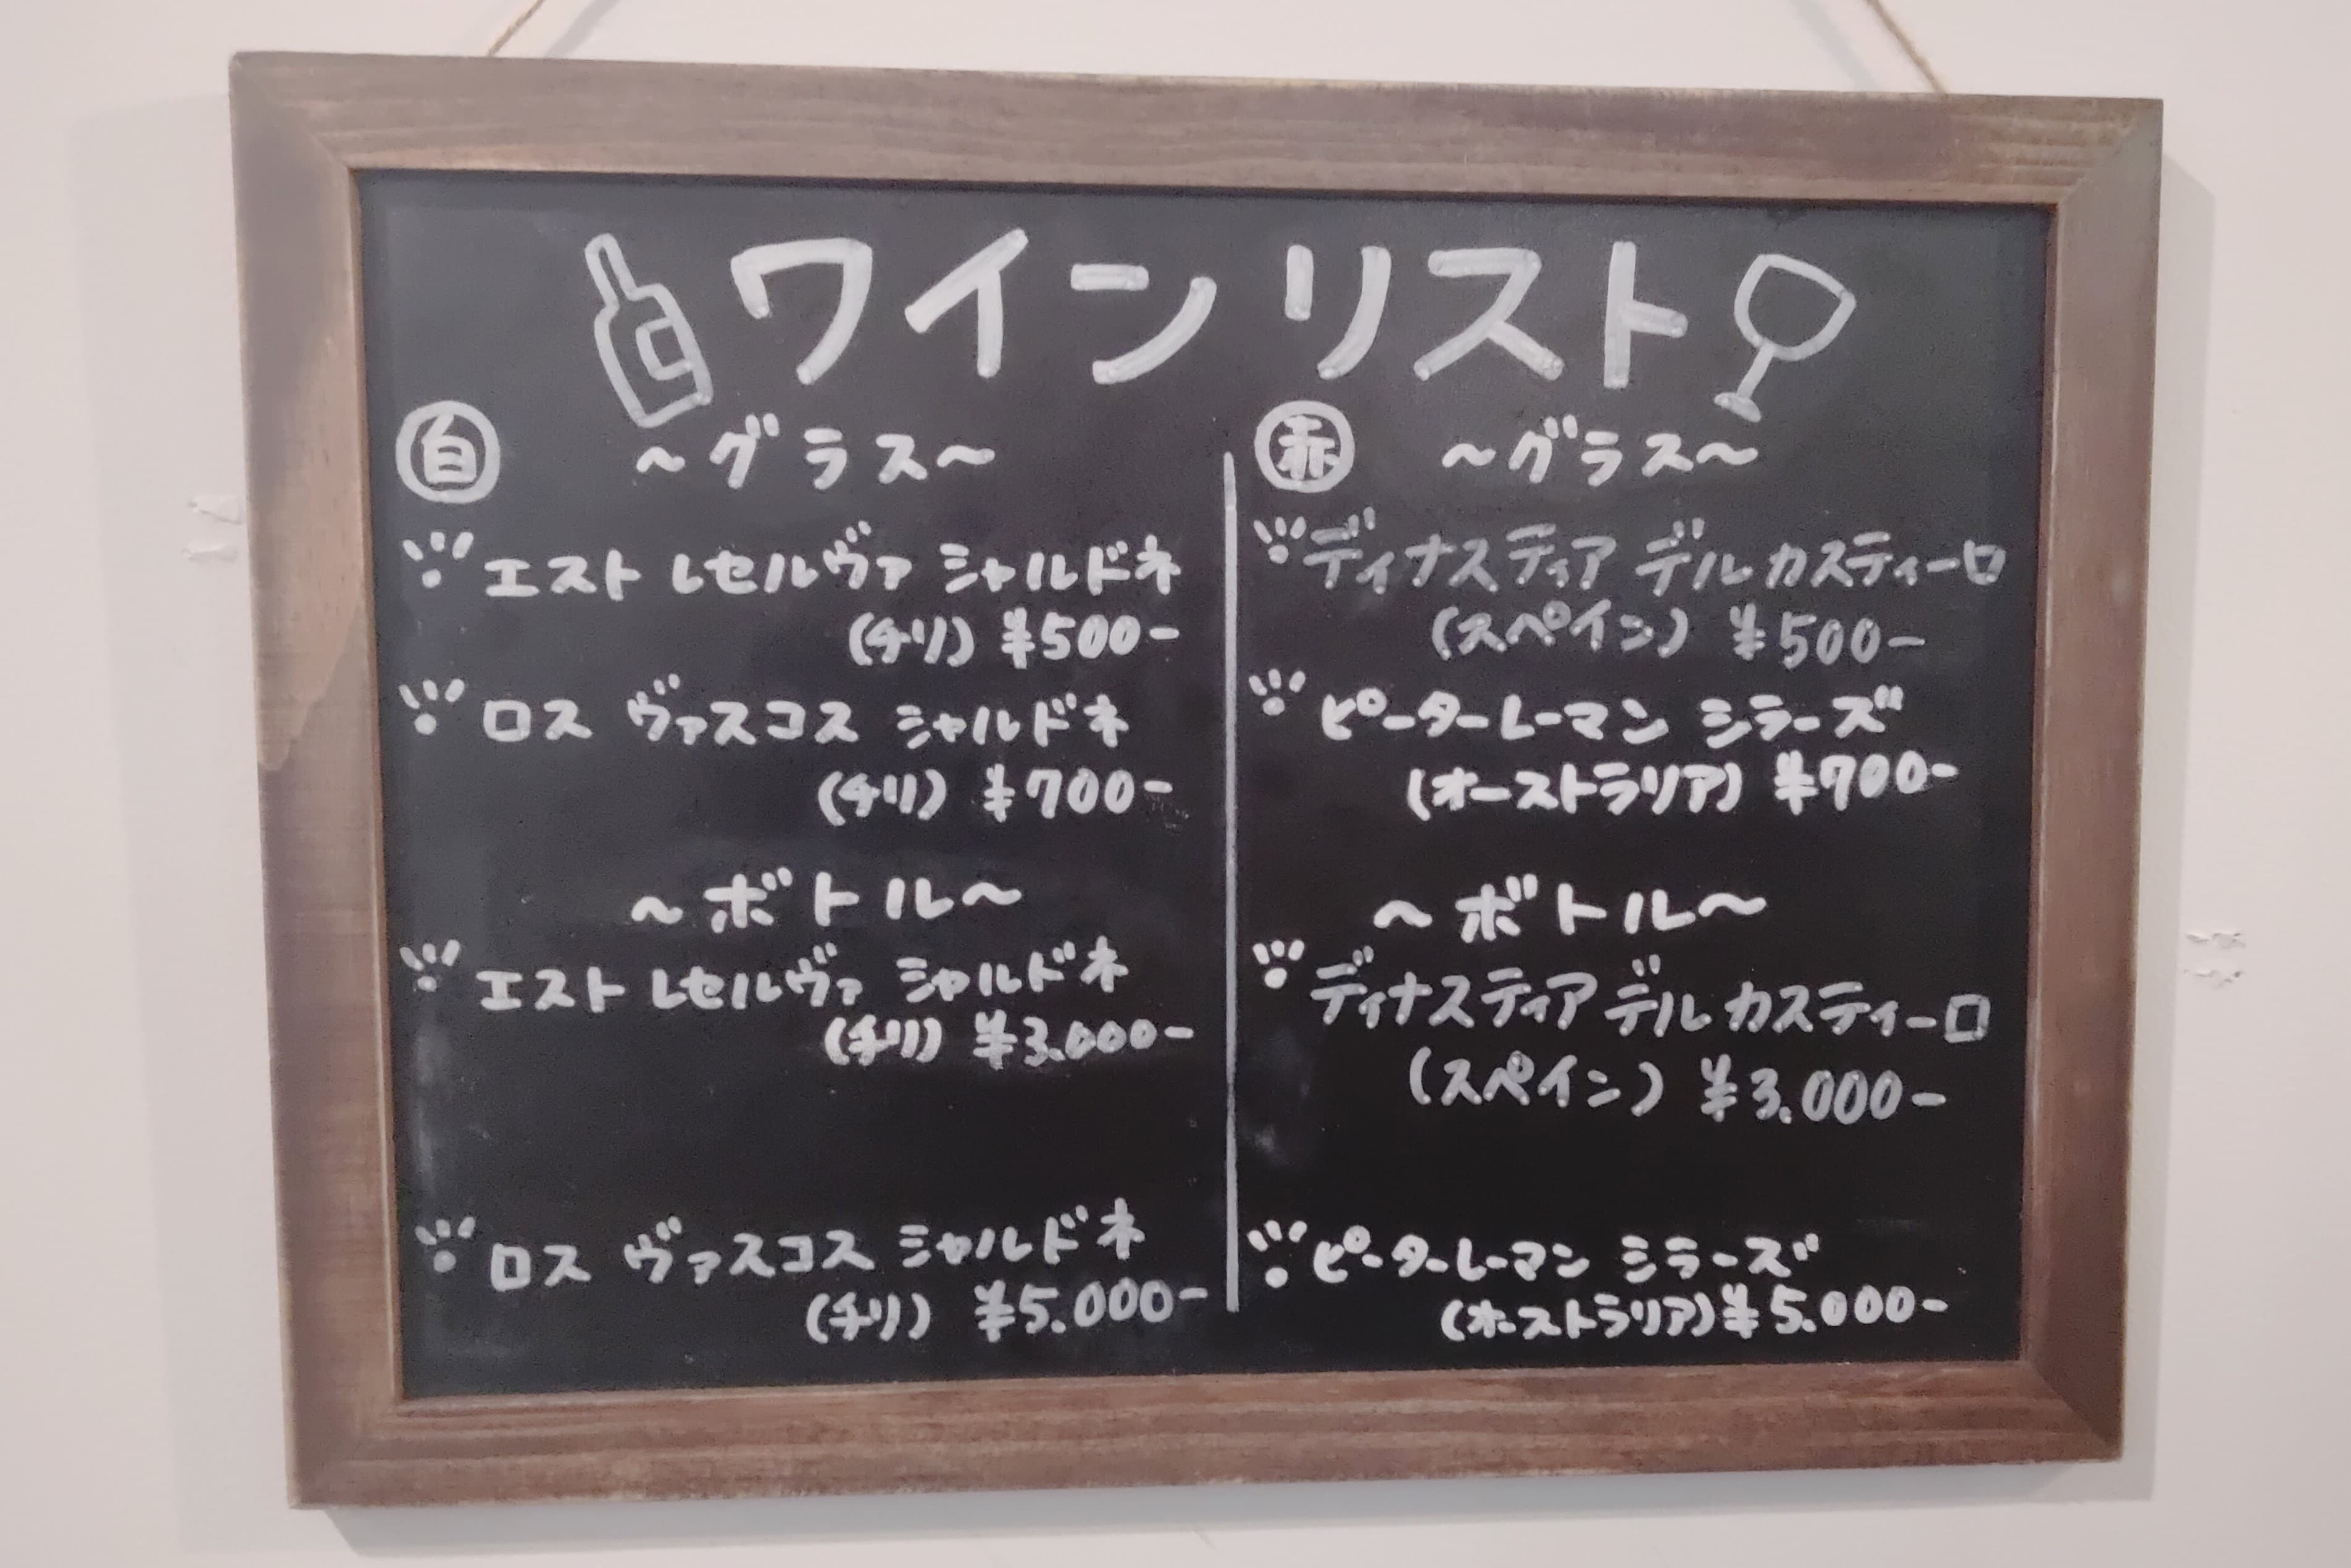 ワインリスト
白 ～グラス～
エスト レセルヴァ シャルドネ
(チリ) ¥500-
ロス ヴァスコス シャルドネ
(チリ) ¥700-
～ボトル～
エスト レセルヴァ シャルドネ
(チリ) ¥3.000-
ロス ヴァスコス シャルドネ
(チリ) ¥5.000-
赤 ～グラス～
ディナスティア デル カスティーロ
(スペイン) ¥500-
ピーターレーマン シラーズ
(オーストラリア) ¥700-
～ボトル～
ディナスティア デル カスティーロ
(スペイン) ¥3.000-
ピーターレーマン シラーズ
(オーストラリア) ¥5.000-